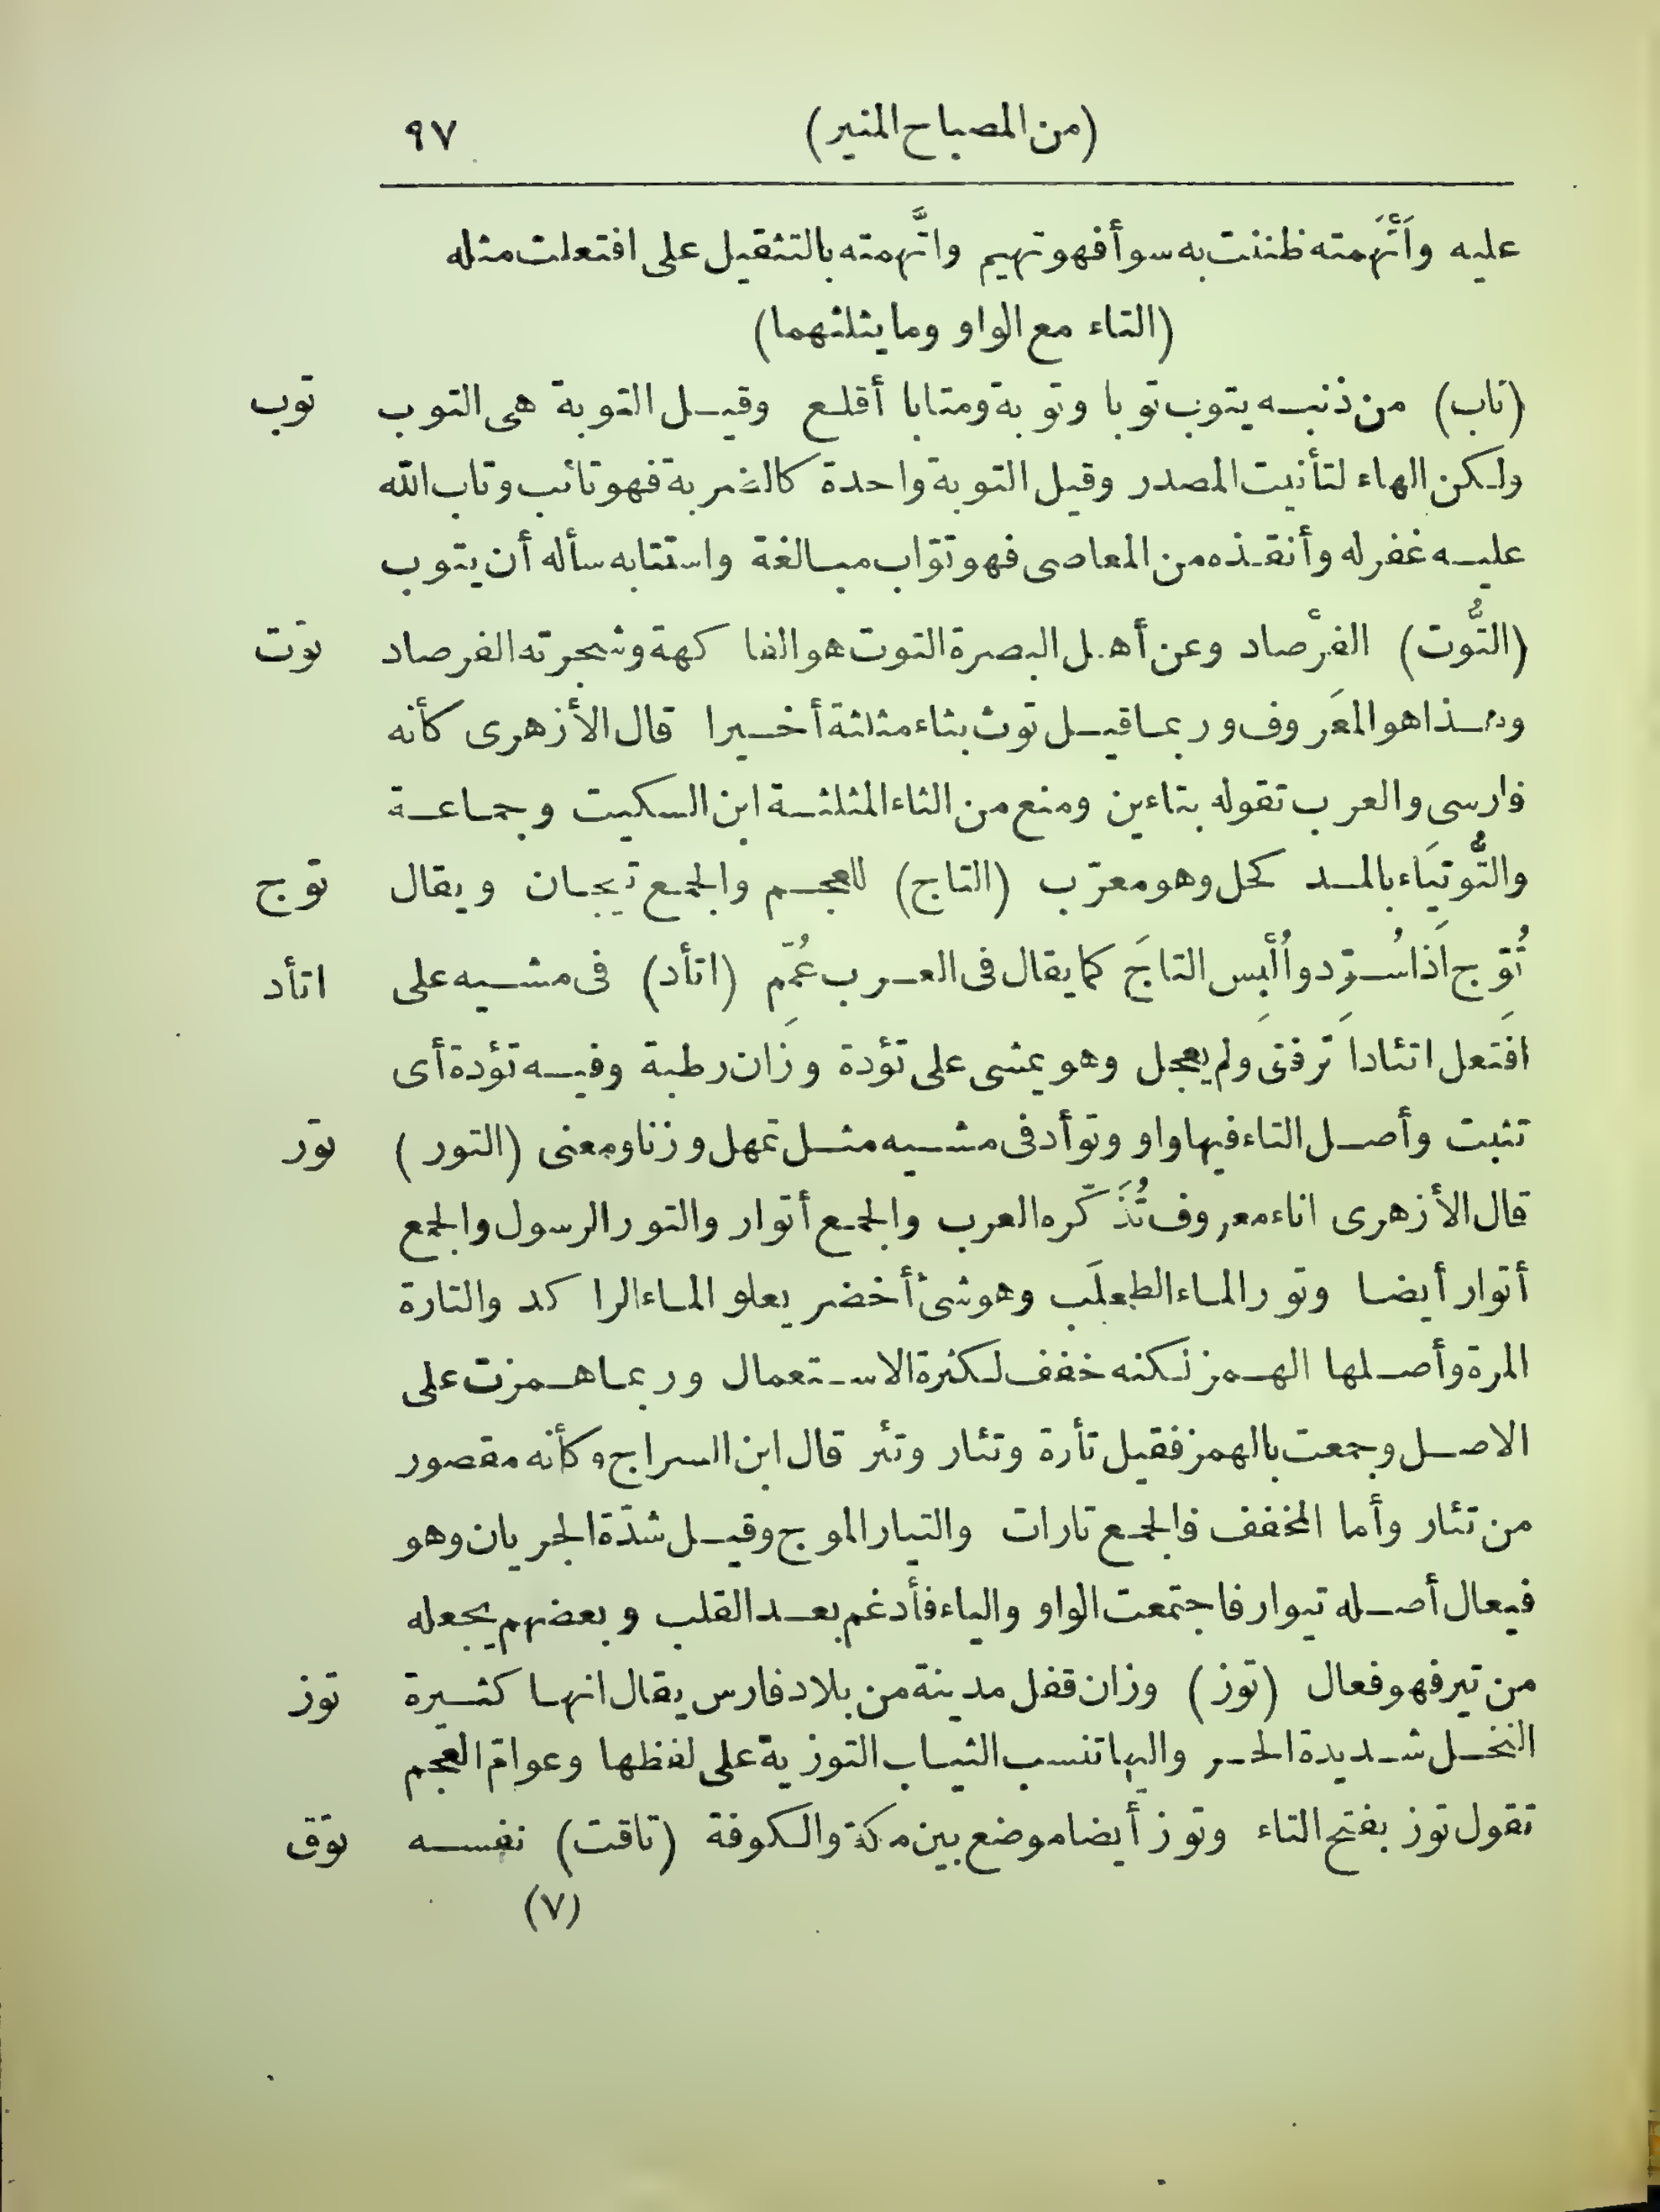 (من المصباح المنير) ٩٧
عليه وأَتْهَمته ظننت به سوأ فهو تهيم واتَّهمته بالتثقيل على افتعلت مثله
(التاء مع الواو وما يثلثهما)
(تاب) من ذنبه يتوب توبا وتوبة ومتابا أقلع وقيل التوبة هى التوب توب
ولكن الهاء لتأنيت المصدر وقيل التوبة واحدة كالضربة فهو تائب وتاب الله
عليه غفر له وأنقذه من المعاصى فهو توّاب مبالغة واستتابه سأله أن يتوب
(التُّوت) الفرْصاد وعن أهل البصرة التوت هو الفاكهة وشجرته الفرصاد توت
وهذا هو المعروف وربما قيل توث بثاء مثلثة أخيرا قال الأزهرى كأنه
فارسى والعرب تقوله بتاءين ومنع من الثاء المثلثة ابن السكيت وجماعة
والتُّوتِيَاء بالمد كحل وهو معرّب (التاج) للعجم والجمع تيجان ويقال توج
تُوّج اذا سُوّد وأُلْبِس التاجَ كما يقال فى العرب عُمّم (اتأد) فى مشيه على اتأد
افتعل اتئادا ترفق ولم يعجل وهو يمشى على تؤدة وزان رطبة وفيه تؤدة أى
تثبت وأصل التاء فيها واو وتوأد فى مشيه مثل تمهل وزنا ومعنى (التور) تور
قال الأزهرى اناء معروف تُذَكّره العرب والجمع أتوار والتور الرسول والجمع
أتوار أيضا وتور الماء الطحلَب وهو شئ أخضر يعلو الماء الراكد والتارة
المرة وأصلها الهمز لكنه خفف لكثرة الاستعمال وربما همزت على
الاصل وجمعت بالهمز فقيل تأرة وتئار وتئر قال ابن السراج وكأنه مقصور
من تئار وأما المخفف فالجمع تارات والتيار الموج وقيل شدّة الجريان وهو
فيعال أصله تيوار فاجتمعت الواو والياء فأدغم بعد القلب وبعضهم يجعله
من تير فهو فعال (توز) وزان قفل مدينة من بلاد فارس يقال انها كثيرة توز
النخل شديدة الحر واليها تنسب الثياب التوزية على لفظها وعوامّ العجم
تقول توز بفتح التاء وتوز أيضا موضع بين مكة والكوفة (تاقت) نفسه توق
(٧)